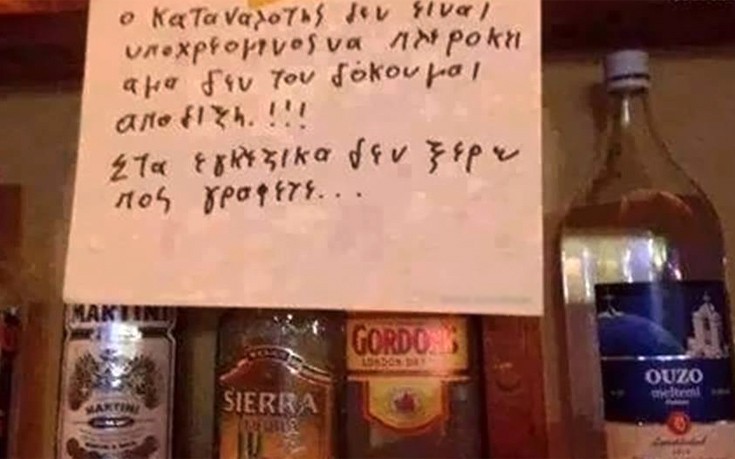 ο καταναλοτης δεν ειναι
υποχρεομενος να πλεροκη
αμα δεν του δόκουμαι
αποδιξη.!!!
Στα εγκεζικα δεν ξερω
πος γραφετε...
MARTINI
MARTINI
SIERRA
GORDON'S
LONDON DRY
OUZO
meltemi